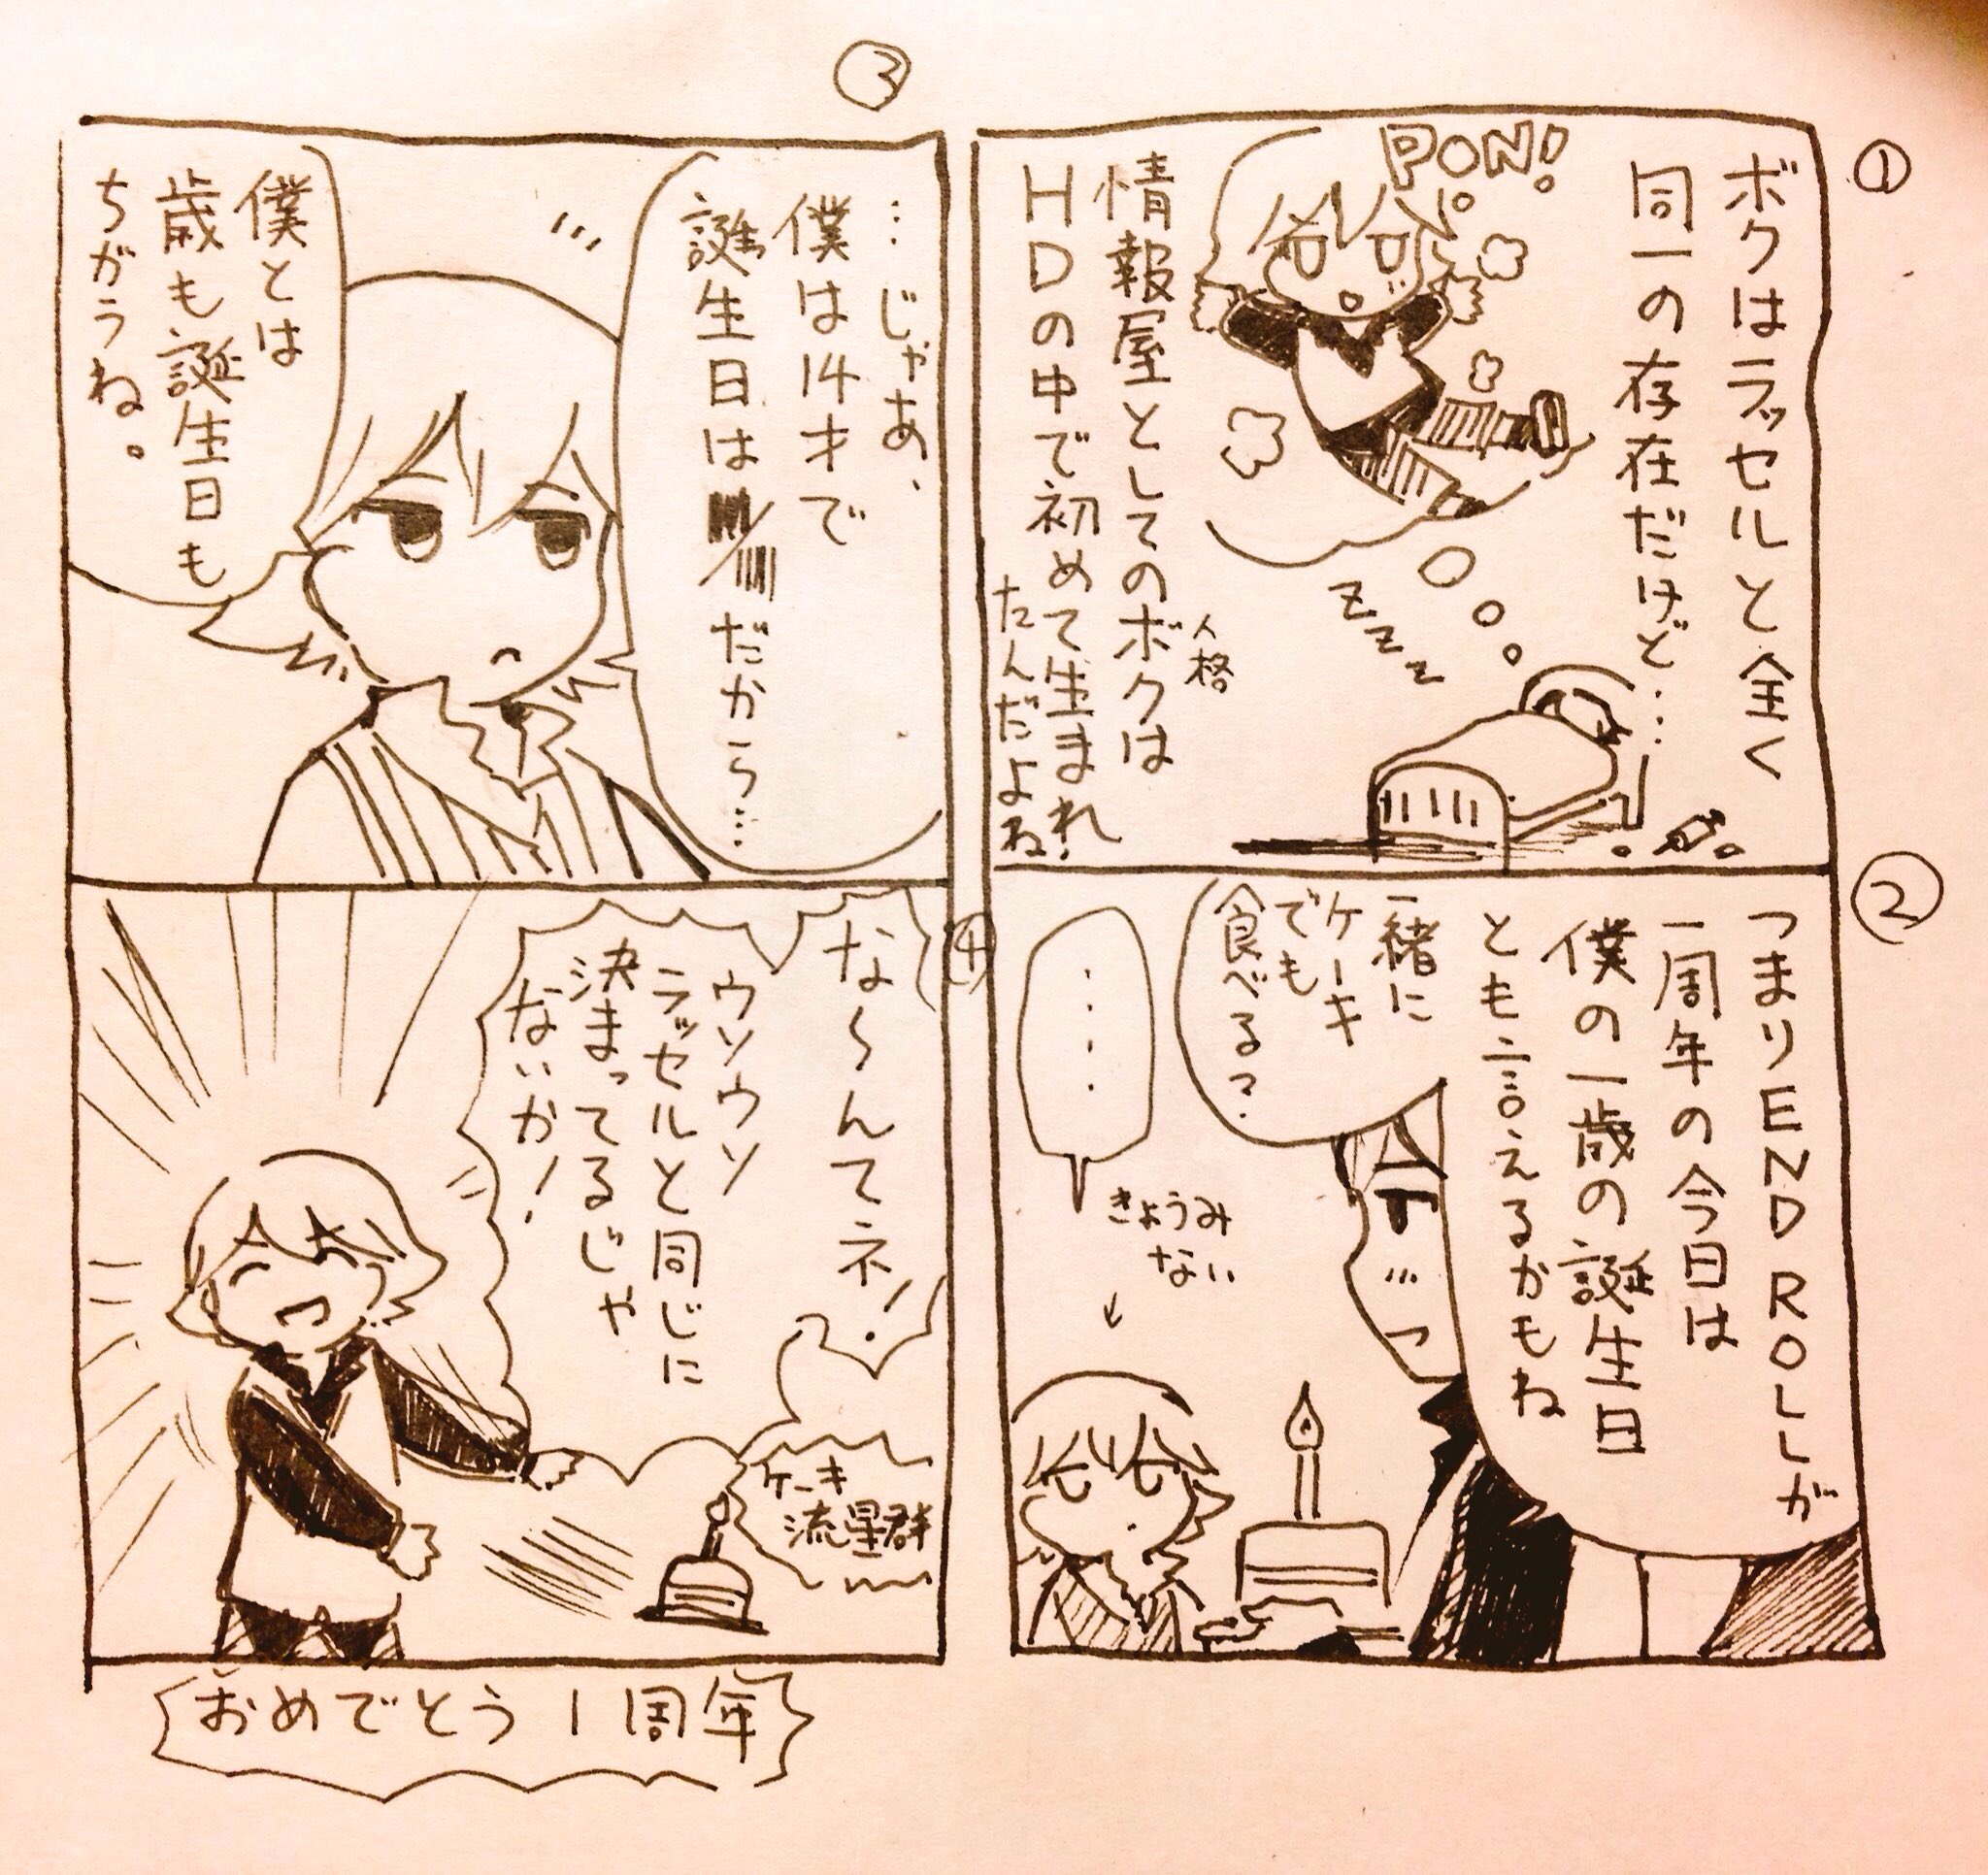 ①
ボクはラッセルと全く
同一の存在だけど…
PON!
情報屋としてのボクは
人格
HDの中で初めて生まれ
たんだよね!
zzz
②
つまりEND ROLLが
一周年の今日は
僕の一歳の誕生日
とも言えるかもね
一緒に
ケーキ
でも
食べる?
……
きょうみ
ない
③
…じゃあ、
僕は14才で
誕生日は
だから…
僕とは
歳も誕生日も
ちがうね。
④
な~んてネ!
ウソウソ
ラッセルと同じに
決まってるじゃ
ないか!
ケーキ
流星群
おめでとう1周年